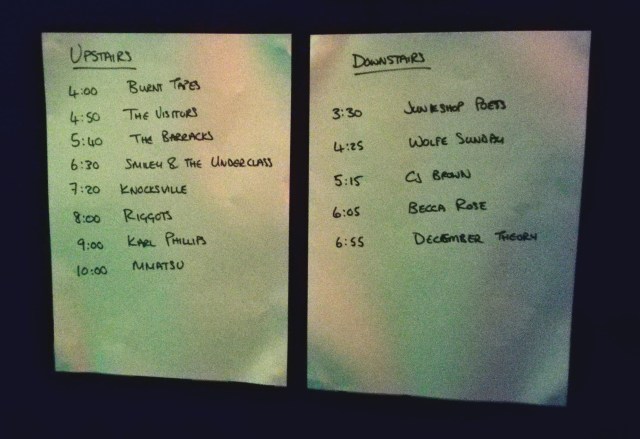 UPSTAIRS
4:00 BURNT TAPES
4:50 THE VISITORS
5:40 THE BARRACKS
6:30 SMILEY & THE UNDERCLASS
7:20 KNOCKSVILLE
8:00 RIGGOTS
9:00 KARL PHILLIPS
10:00 MNATSU
DOWNSTAIRS
3:30 JUNKSHOP POETS
4:25 WOLFE SUNDAY
5:15 CJ BROWN
6:05 BECCA ROSE
6:55 DECEMBER THEORY